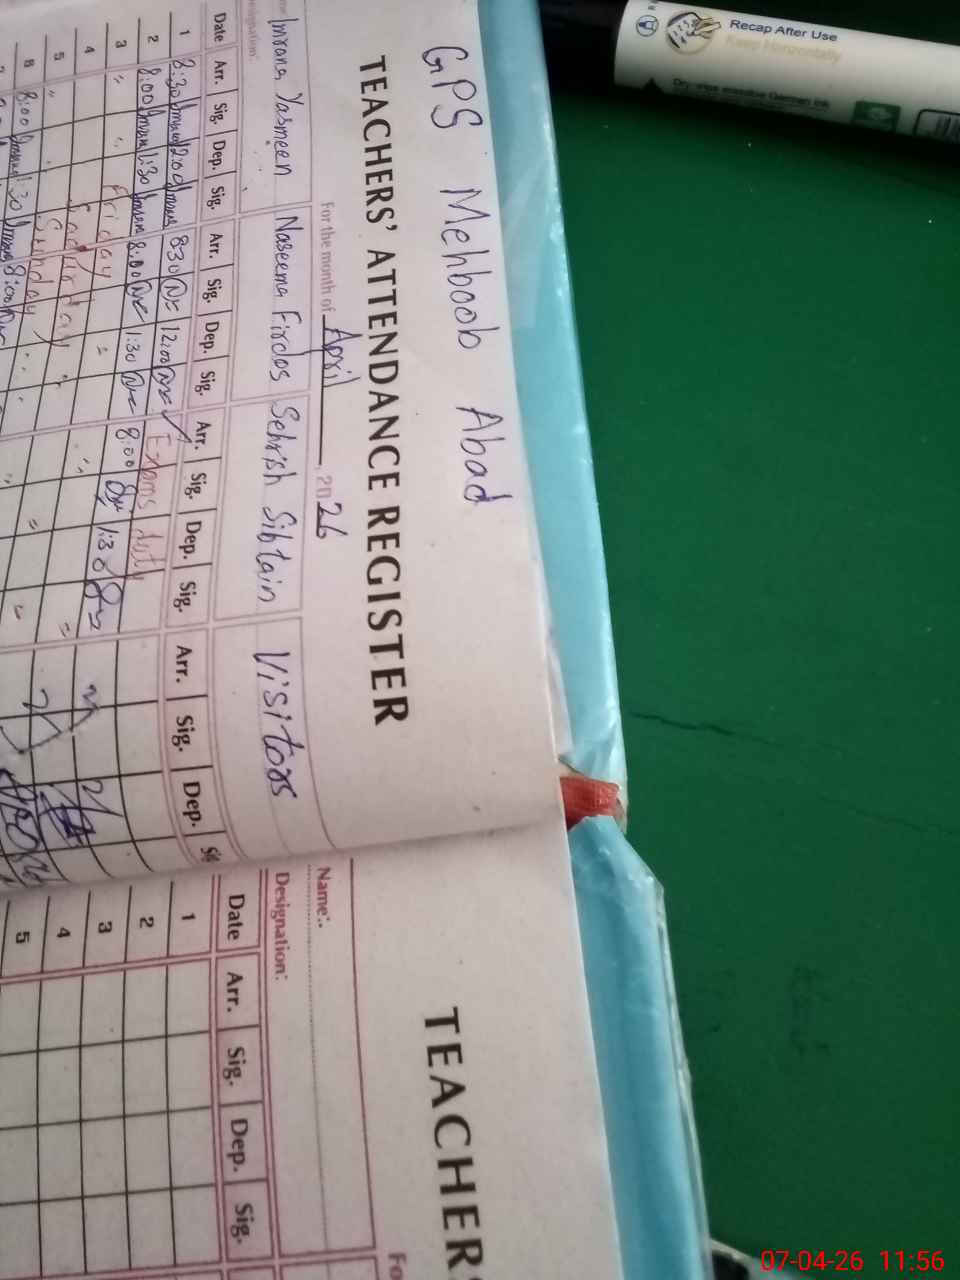 GPS Mehboob Abad
TEACHERS' ATTENDANCE REGISTER
For the month of April, 2026
Imrana Yasmeen Naseema Firdos Sehrish Sibtain Visitors
Date Arr. Sig. Dep. Sig. Arr. Sig. Dep. Sig. Arr. Sig. Dep. Sig. Arr. Sig. Dep.
1 8:30 12:00 830 12:00 Exams duty
2 8:00 1:30 8:00 1:30 8:00 1:30
3 " " Friday "
4 Saturday " "
5 " Sunday " "
6 8:00 1:30 8:00
TEACHERS
Name:-
Designation:
Date Arr. Sig. Dep. Sig.
1
2
3
4
5
Recap After Use
Keep Horizontally
Dry-wipe erasable German ink
07-04-26 11:56